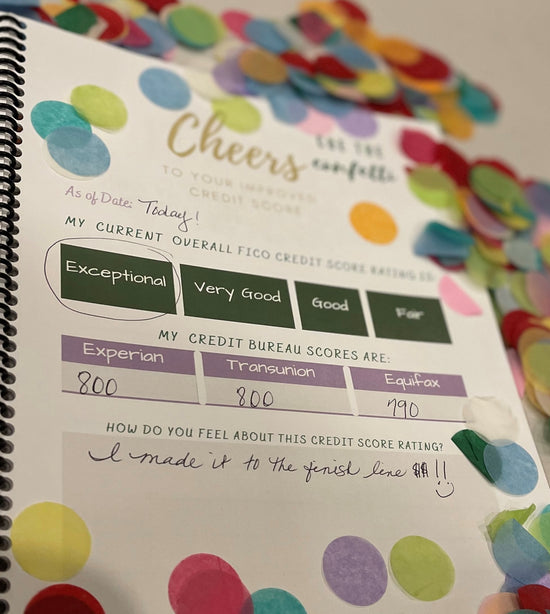 Cheers
CUE THE
confetti
TO YOUR IMPROVED
CREDIT SCORE
As of Date: Today!
MY CURRENT OVERALL FICO CREDIT SCORE RATING IS:
Exceptional Very Good Good Fair
MY CREDIT BUREAU SCORES ARE:
Experian Transunion Equifax
800 800 790
HOW DO YOU FEEL ABOUT THIS CREDIT SCORE RATING?
I made it to the finish line $$!!